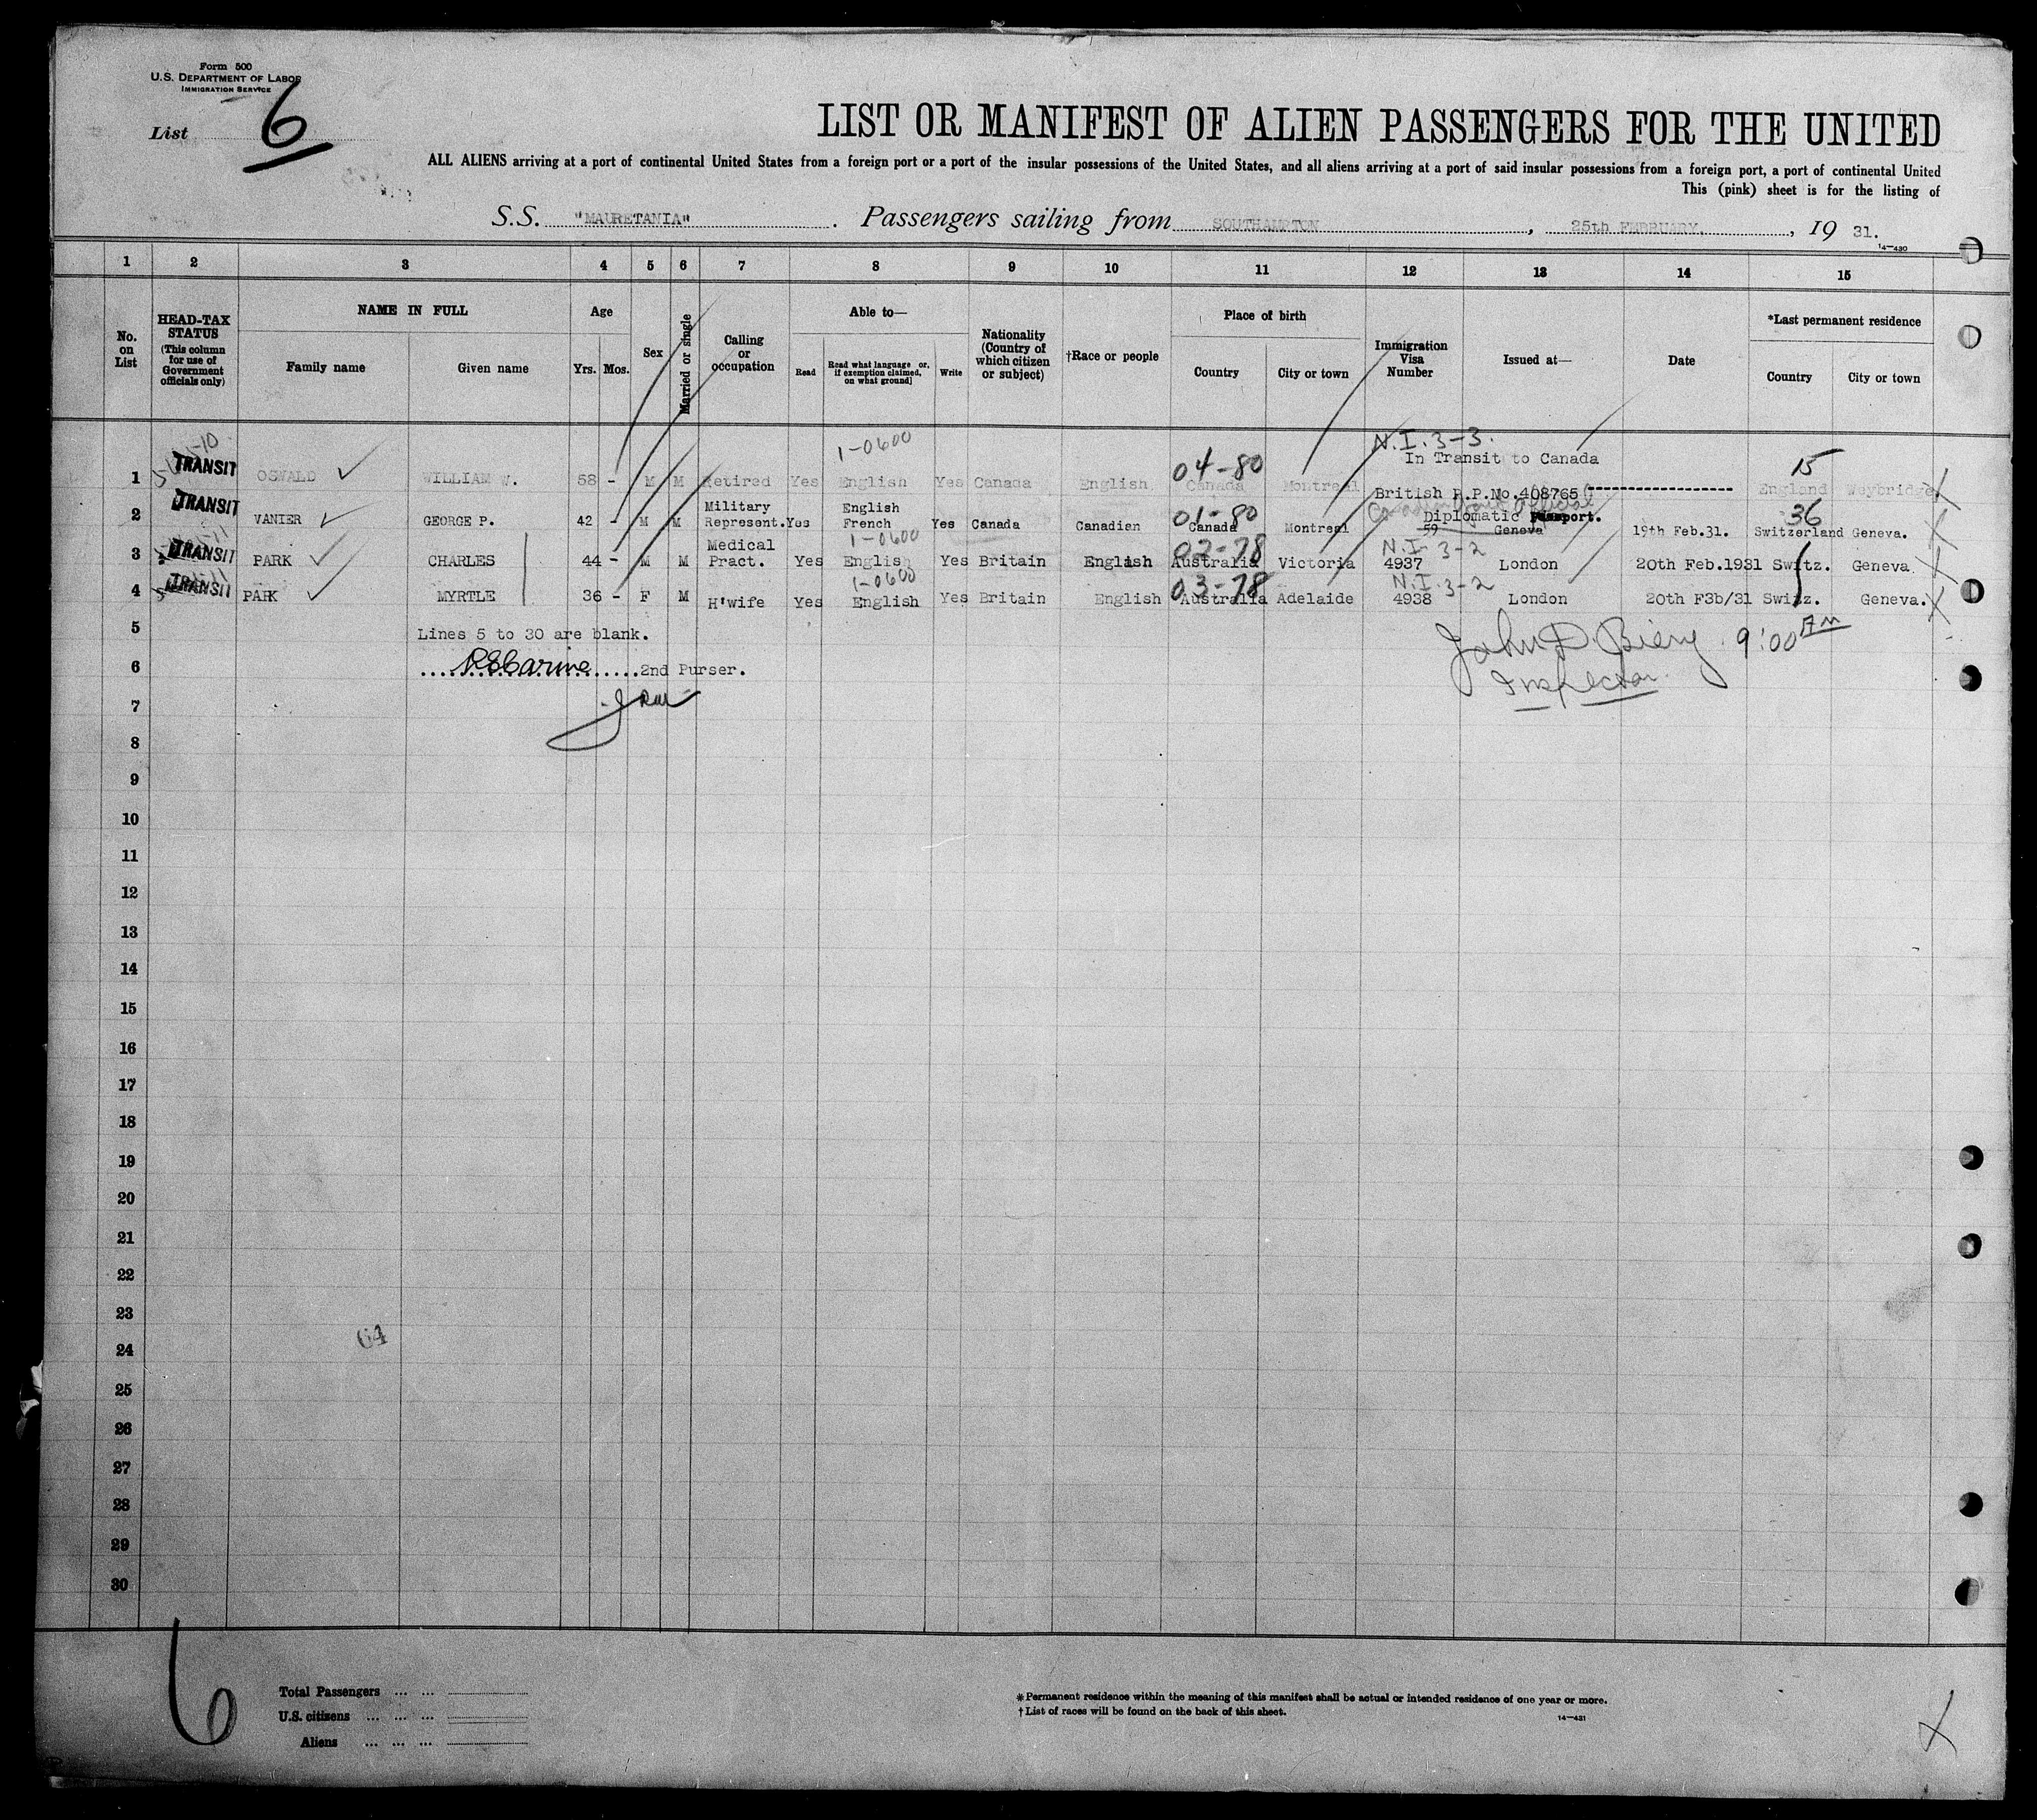 Form 500
U.S. DEPARTMENT OF LABOR
IMMIGRATION SERVICE
List 6
LIST OR MANIFEST OF ALIEN PASSENGERS FOR THE UNITED
ALL ALIENS arriving at a port of continental United States from a foreign port or a port of the insular possessions of the United States, and all aliens arriving at a port of said insular possessions from a foreign port, a port of continental United
This (pink) sheet is for the listing of
S.S. "MAURETANIA". Passengers sailing from SOUTHAMPTON, 25th FEBRUARY, 19 31.
14-430
1 2 3 4 5 6 7 8 9 10 11 12 13 14 15
No. on List
HEAD-TAX STATUS
(This column for use of Government officials only)
NAME IN FULL
Family name Given name
Age
Yrs. Mos.
Sex
Married or single
Calling or occupation
Able to—
Read
Read what language or, if exemption claimed, on what ground]
Write
Nationality (Country of which citizen or subject)
†Race or people
Place of birth
Country City or town
Immigration Visa Number
Issued at—
Date
*Last permanent residence
Country City or town
1-0600 N.I. 3-3.
04-80 In Transit to Canada 15
1 TRANSIT OSWALD WILLIAM W. 58 - M M Retired Yes English Yes Canada English Canada Montreal British P.P.No.408765 England Weybridge
Military English 01-80 Diplomatic Passport. 36
2 TRANSIT VANIER GEORGE P. 42 - M M Represent. Yes French Yes Canada Canadian Canada Montreal 59 Geneva 19th Feb.31. Switzerland Geneva.
Medical 1-0600 02-78 N.I. 3-2
3 TRANSIT PARK CHARLES 44 - M M Pract. Yes Englis Yes Britain English Australia Victoria 4937 London 20th Feb.1931 Switz. Geneva.
1-0600 03-78 N.I. 3-2
4 TRANSIT PARK MYRTLE 36 - F M H'wife Yes English Yes Britain English Australia Adelaide 4938 London 20th F3b/31 Switz. Geneva.
5 Lines 5 to 30 are blank.
John D. Biery 9:00 AM
6 2nd Purser.
Inspector.
7
8
9
10
11
12
13
14
15
16
17
18
19
20
21
22
23
64
24
25
26
27
28
29
30
6
Total Passengers ... ...
U.S. citizens ... ... ...
Aliens ... ... ...
*Permanent residence within the meaning of this manifest shall be actual or intended residence of one year or more.
†List of races will be found on the back of this sheet.
14-431